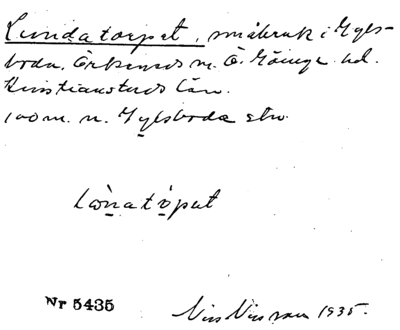 Lundatorpet, småbruk i Gyls-
boda. Örkeneds sn. Ö. Göinge hd.
Kristianstads län.
100 m. n. Gylsboda stn.
Lo̤na̤tö̤pet
Nr 5435
Nils Nilsson 1935.